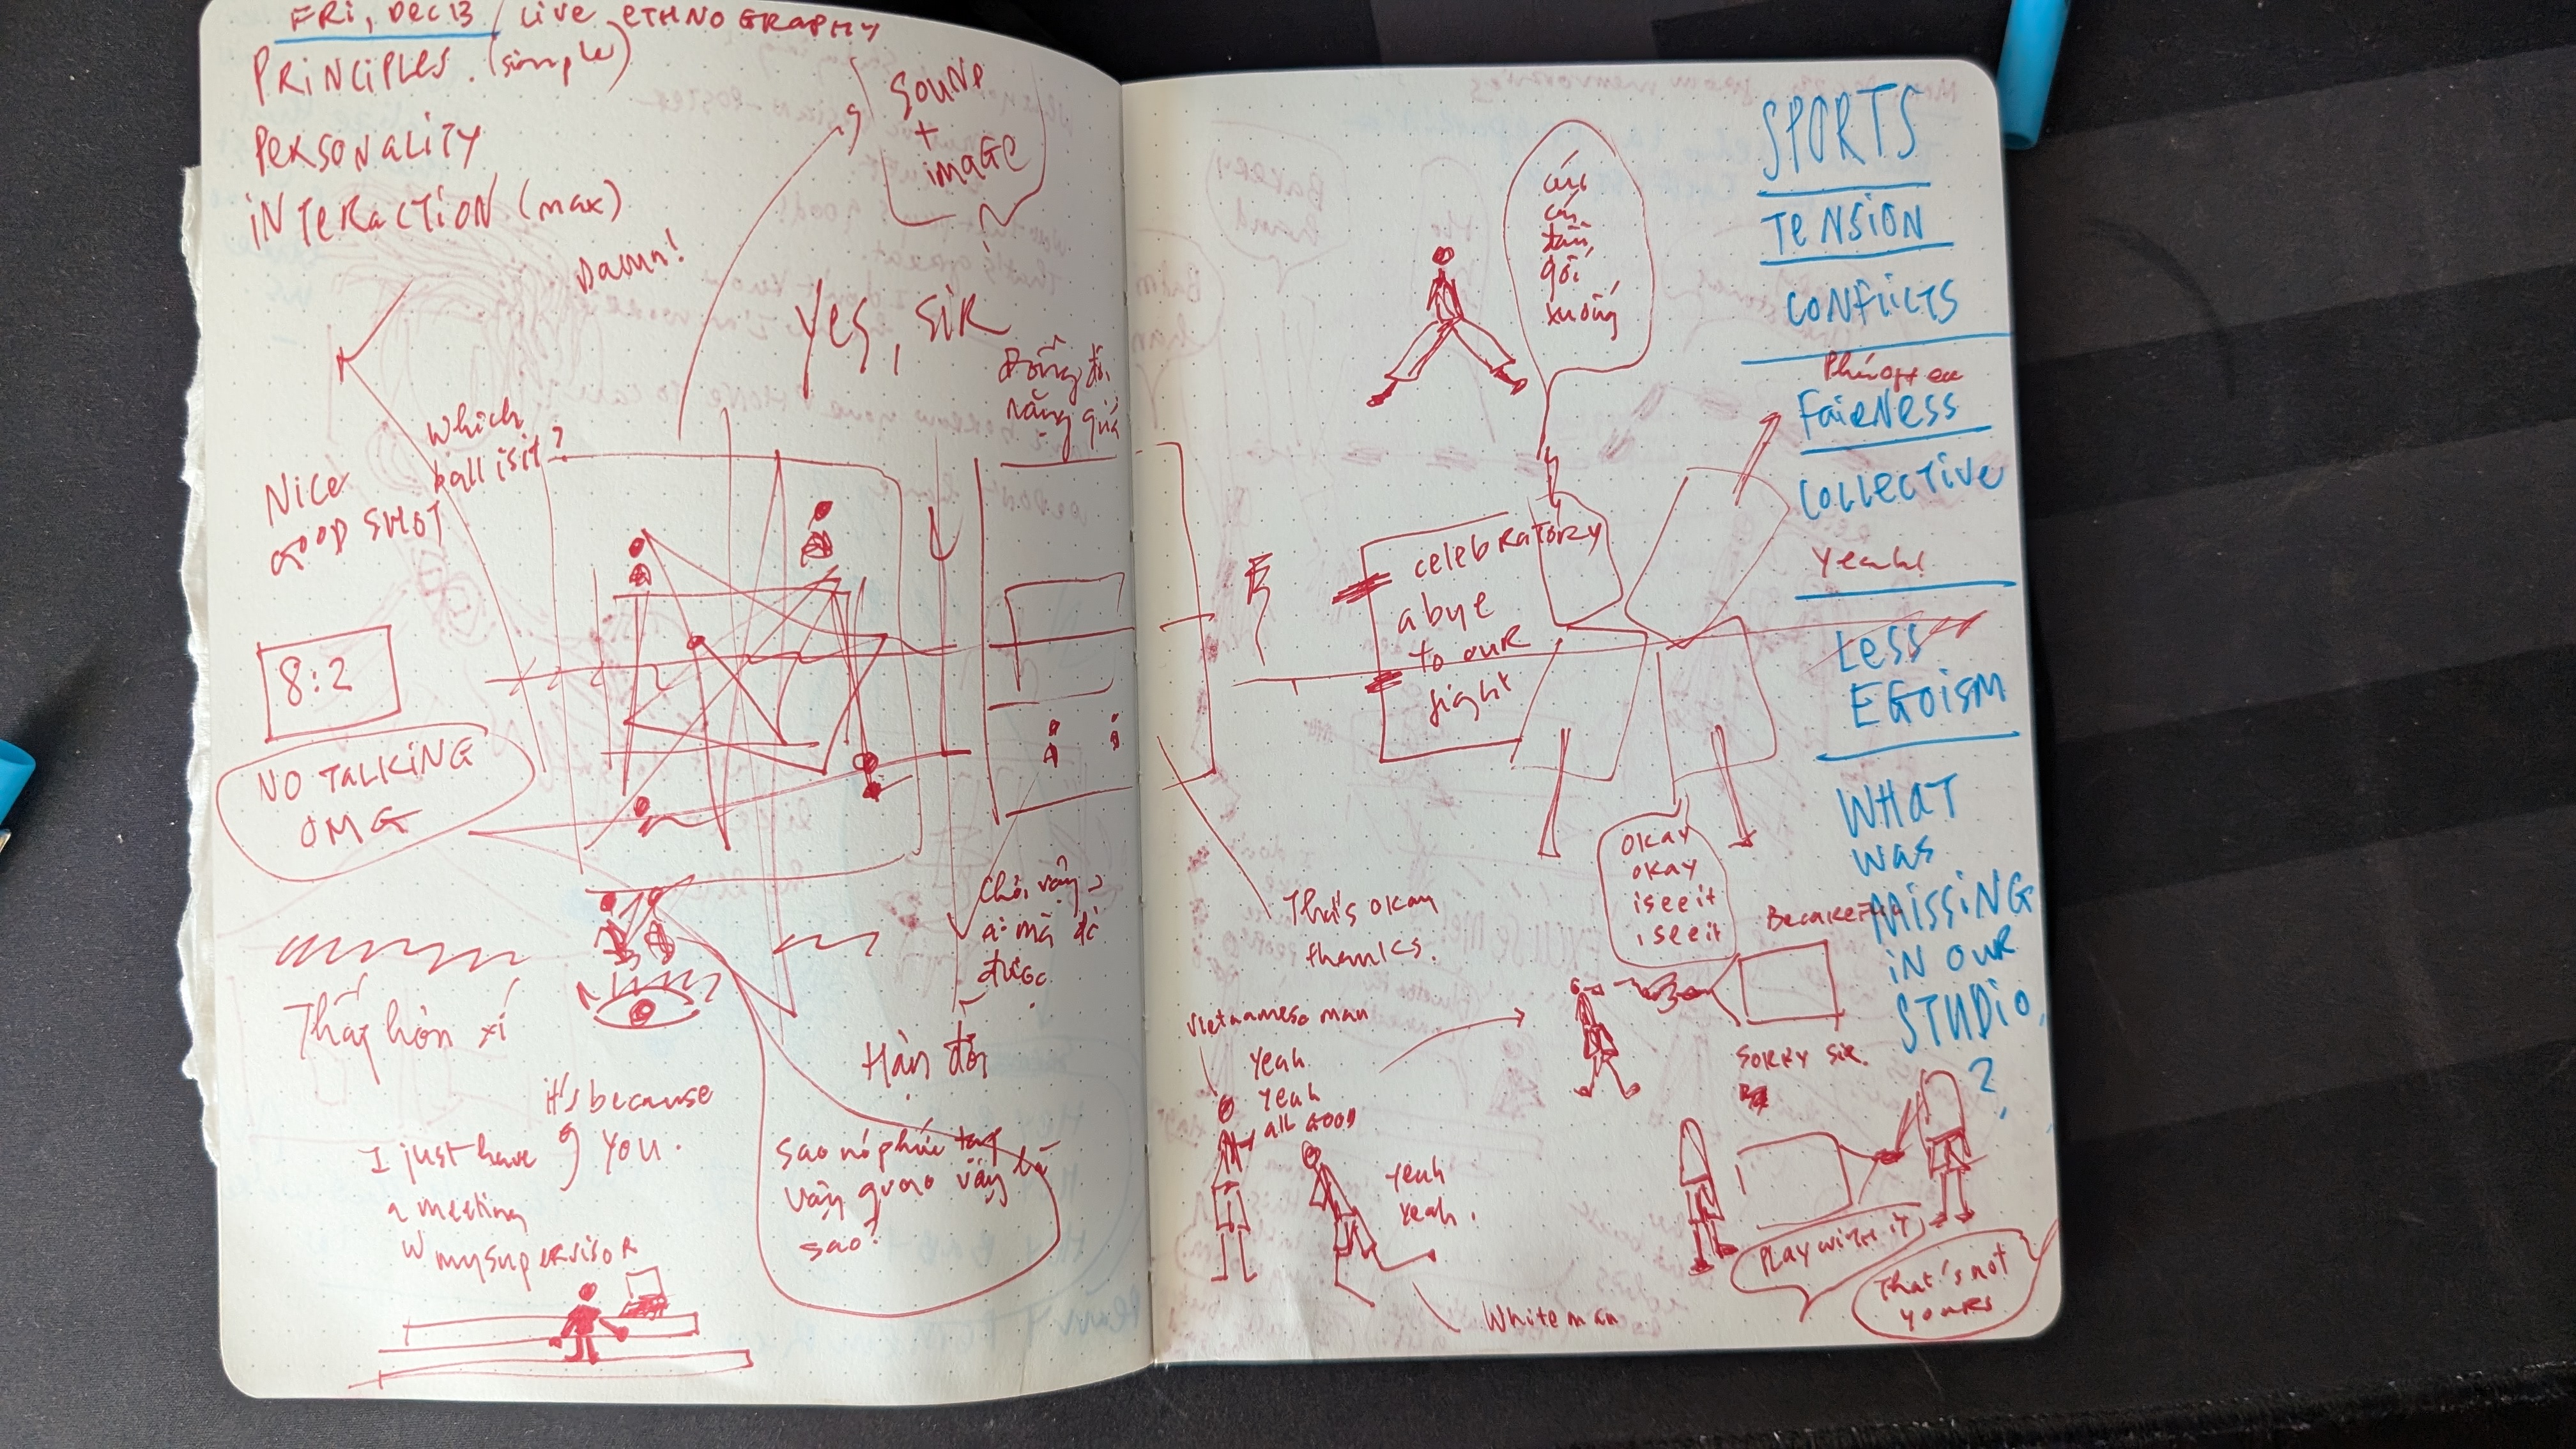 FRi, Dec 13 / Live ETHNOGRAPHY
PRiNCiPLes. (simple)
PeRSONaLiTY
iNTeRacTiON (max)
SOUND
+
imaGe
Damn!
Yes, siR
Which
ball is it?
Nice
GOOD SHOT
8:2
NO TaLKiNG
OMG
Thấy hòn xí
it's because
you.
I just have
a meeting
w my supervisoR
Hàn đới
Sao nó phức tạp
vậy
sao?
được
celebRaToRy
a bye
to ouR
fight
gối
xuống
SPORTS
TeNSiON
CONFliCTS
FaiRNess
COLLecTive
Yeah!
Less
EGOiSM
WHaT
was
MiSSiNG
iN OUR
STUDiO
?
That's okay
thanks.
OKay
OKay
i see it
i see it
Vietnamese man
Yeah
Yeah
all GOOD
yeah
yeah.
White man
SORRY SiR.
PLay wiTH iT
That's not
youRs